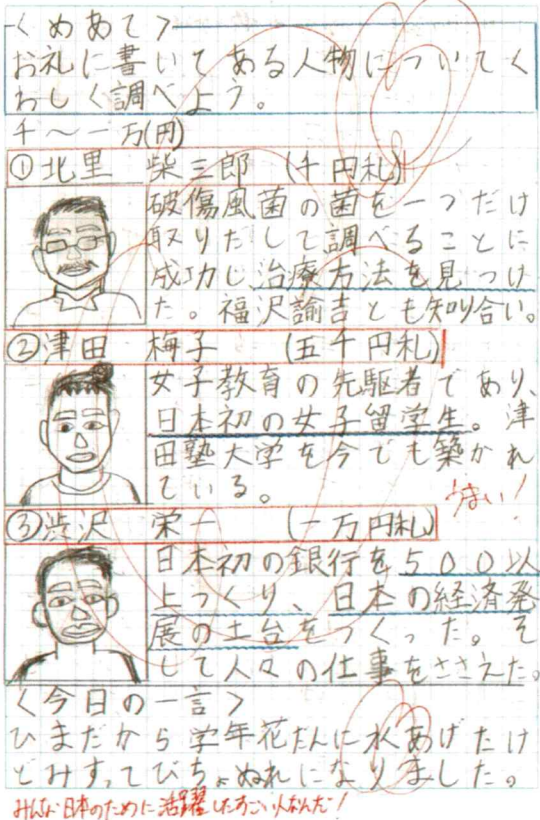 <めあて>
お礼に書いてある人物についてく
わしく調べよう。
千〜一万(円)
①北里 柴三郎 (千円札)
破傷風菌の菌を一つだけ
取りだして調べることに
成功し、治療方法を見つけ
た。福沢諭吉とも知り合い。
②津田 梅子 (五千円札)
女子教育の先駆者であり、
日本初の女子留学生。津
田塾大学を今でも築かれ
ている。
うまい!
③渋沢 栄一 (一万円札)
日本初の銀行を500以
上つくり、日本の経済発
展の土台をつくった。そ
して人々の仕事をささえた。
<今日の一言>
ひまだから学年花だんに水あげたけ
どみすってびちょぬれになりました。
みんな日本のために活躍したすごい人なんだ!